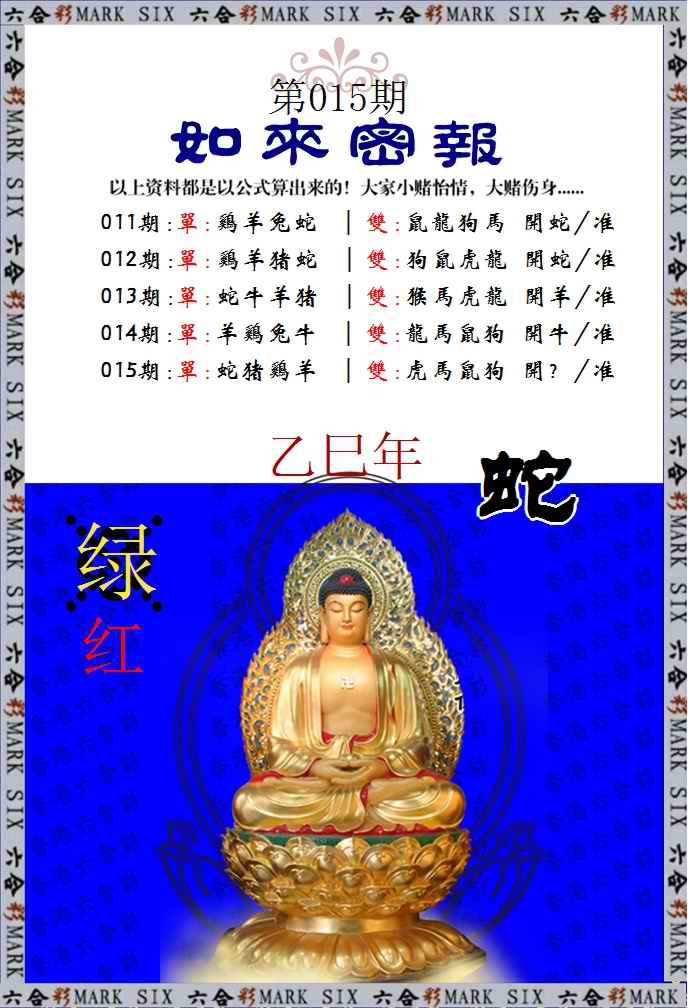 六合彩MARK SIX 六合彩MARK SIX 六合彩MARK SIX 六合彩MARK SIX 六合彩MARK SIX
第015期
如來密報
以上资料都是以公式算出来的！大家小赌怡情，大赌伤身......
011期:單:鷄羊兔蛇 |雙:鼠龍狗馬 開蛇/准
012期:單:鷄羊猪蛇 |雙:狗鼠虎龍 開蛇/准
013期:單:蛇牛羊猪 |雙:猴馬虎龍 開羊/准
014期:單:羊鷄兔牛 |雙:龍馬鼠狗 開牛/准
015期:單:蛇猪鷄羊 |雙:虎馬鼠狗 開？/准
乙巳年
蛇
绿
红
六合彩MARK SIX 六合彩MARK SIX 六合彩MARK SIX 六合彩MARK SIX 六合彩MARK SIX